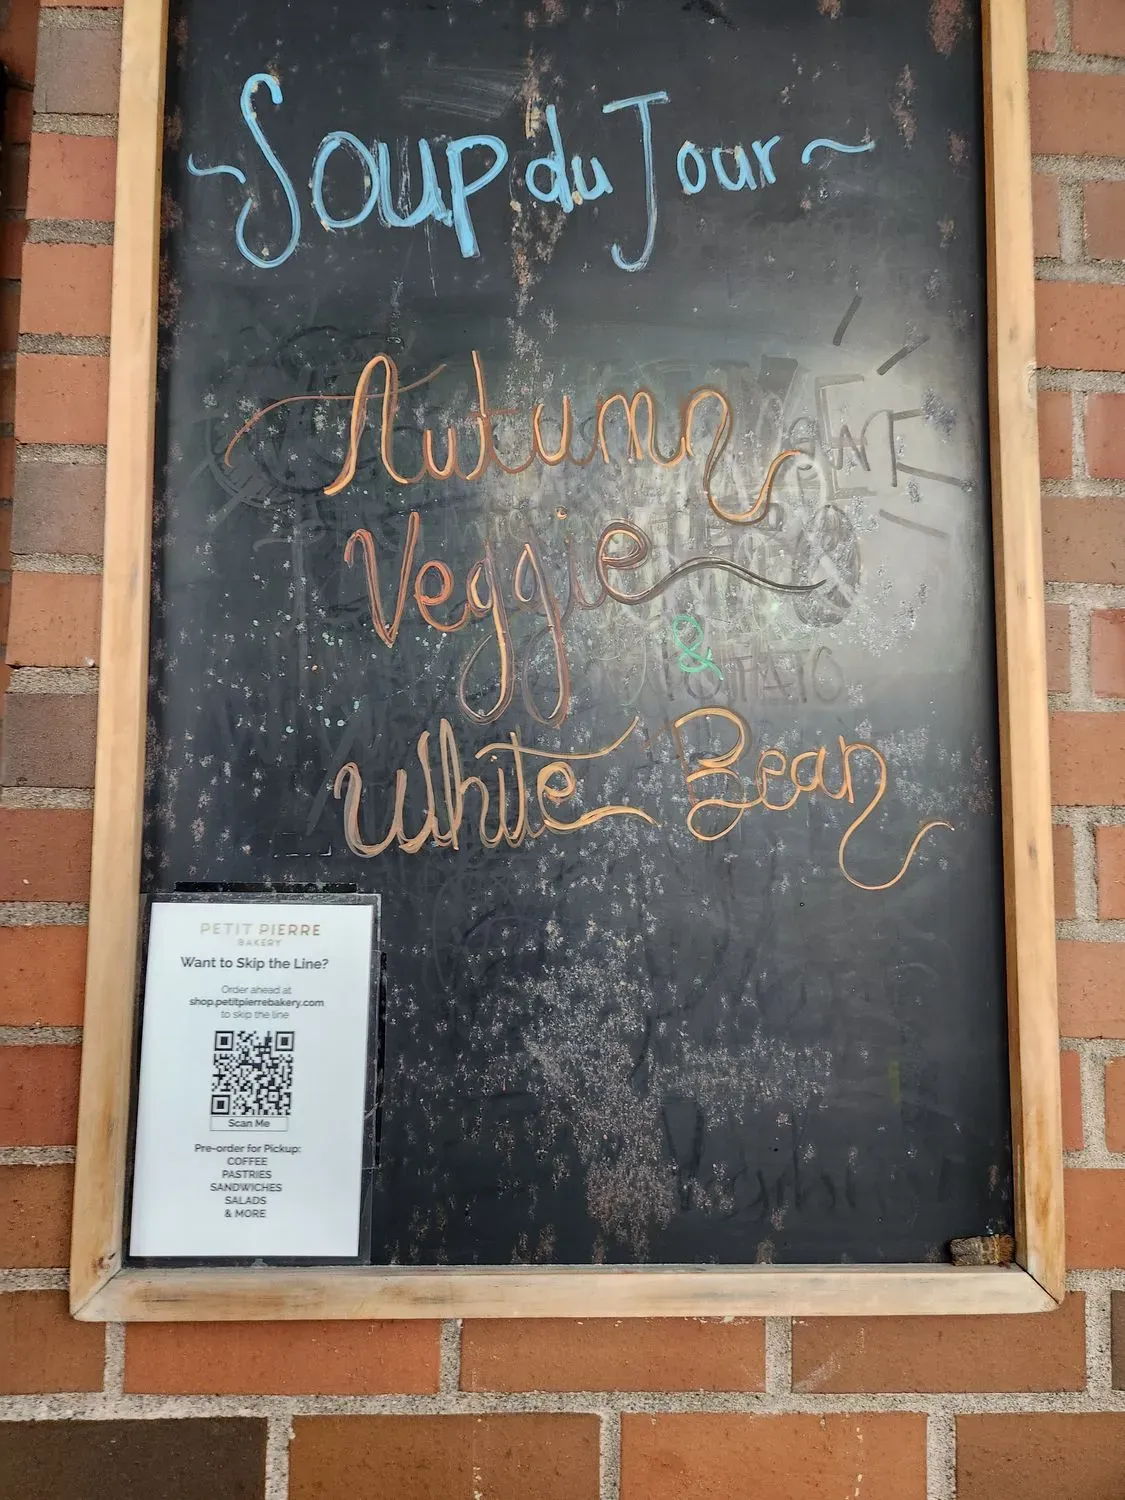 ~Soup du Jour~
Autumn
Veggie
&
White Bean
PETIT PIERRE
BAKERY
Want to Skip the Line?
Order ahead at
shop.petitpierrebakery.com
to skip the line
Scan Me
Pre-order for Pickup:
COFFEE
PASTRIES
SANDWICHES
SALADS
& MORE